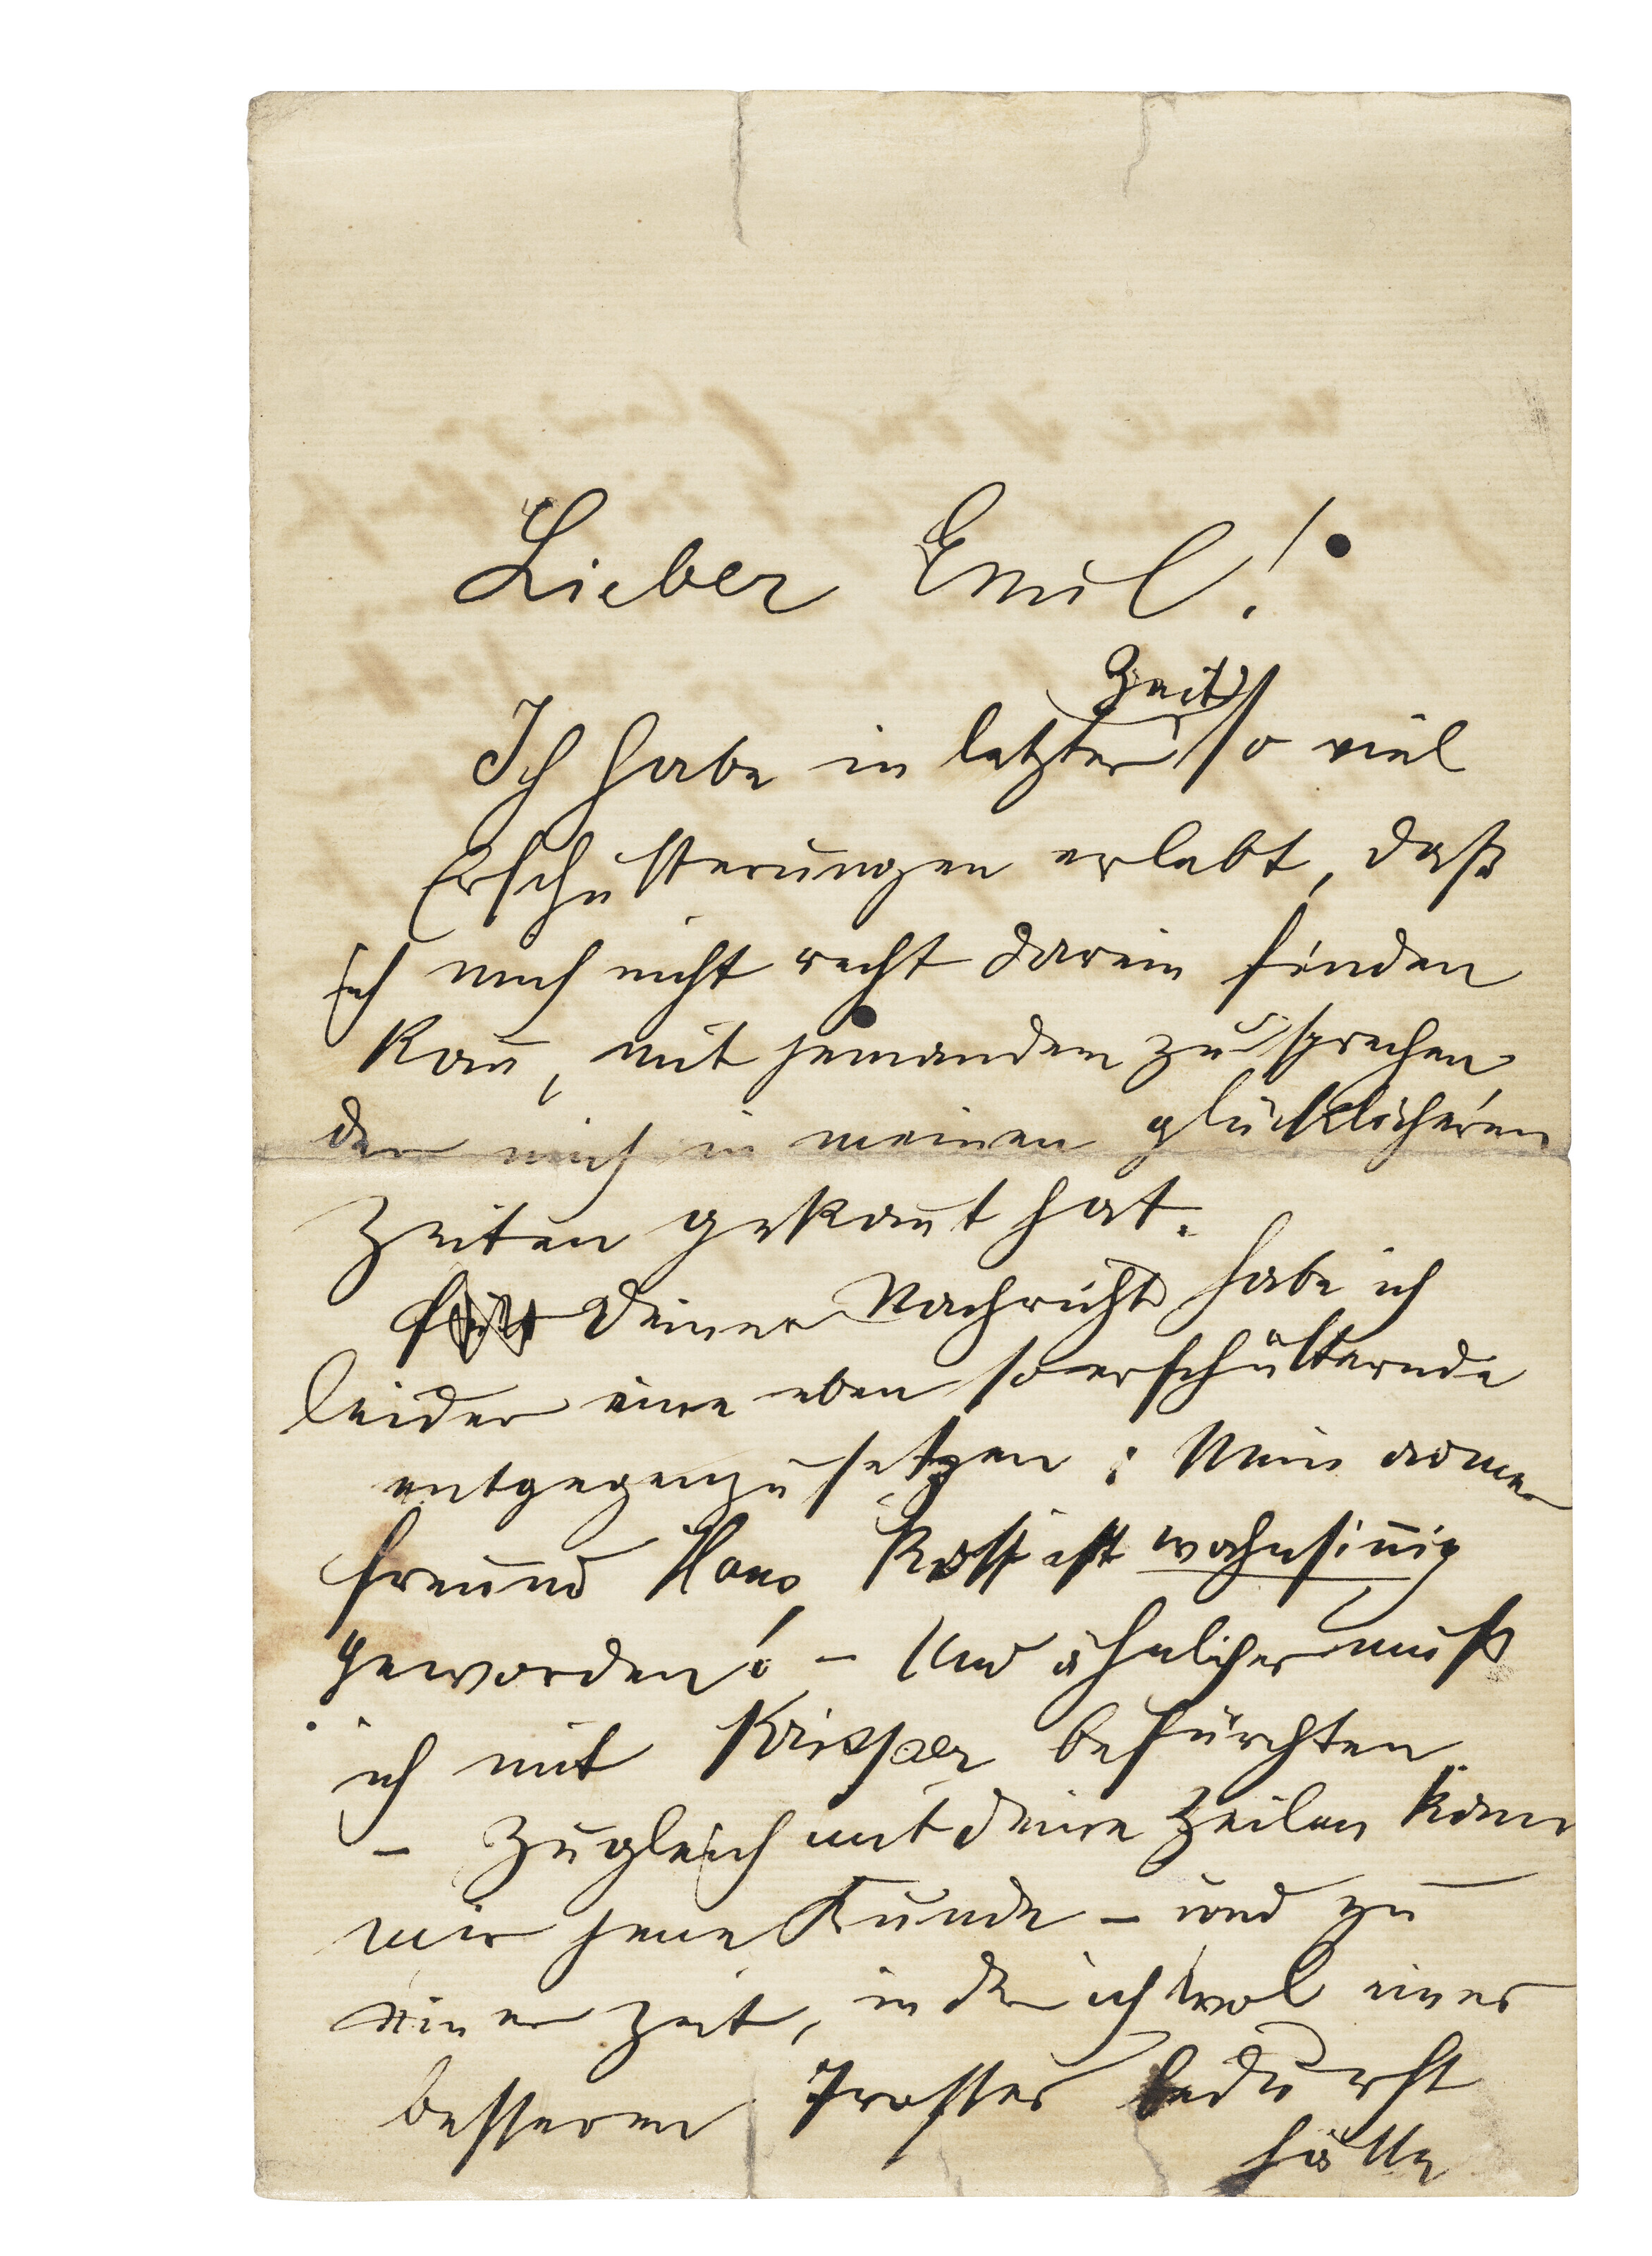 Lieber Emil!
Zeit
Ich habe in letzter so viel
Erschütterungen erlebt, daß
ich mich nicht recht darein finden
kan̄, mit jemandem zu sprechen
der mich in meinen glücklicheren
Zeiten gekan̄t hat.
Deiner Nachricht habe ich
leider eine eben so erschütternde
entgegenzusetzen: Mein armer
Freund Hans Rott ist wahnsin̄ig
geworden! – Und ähnliches muß
ich mit Krisper befürchten.
– Zugleich mit deinen Zeilen kam
mir jene Kunde – und zu
einer Zeit, in der ich wol eines
besseren Trostes bedurft
hätte